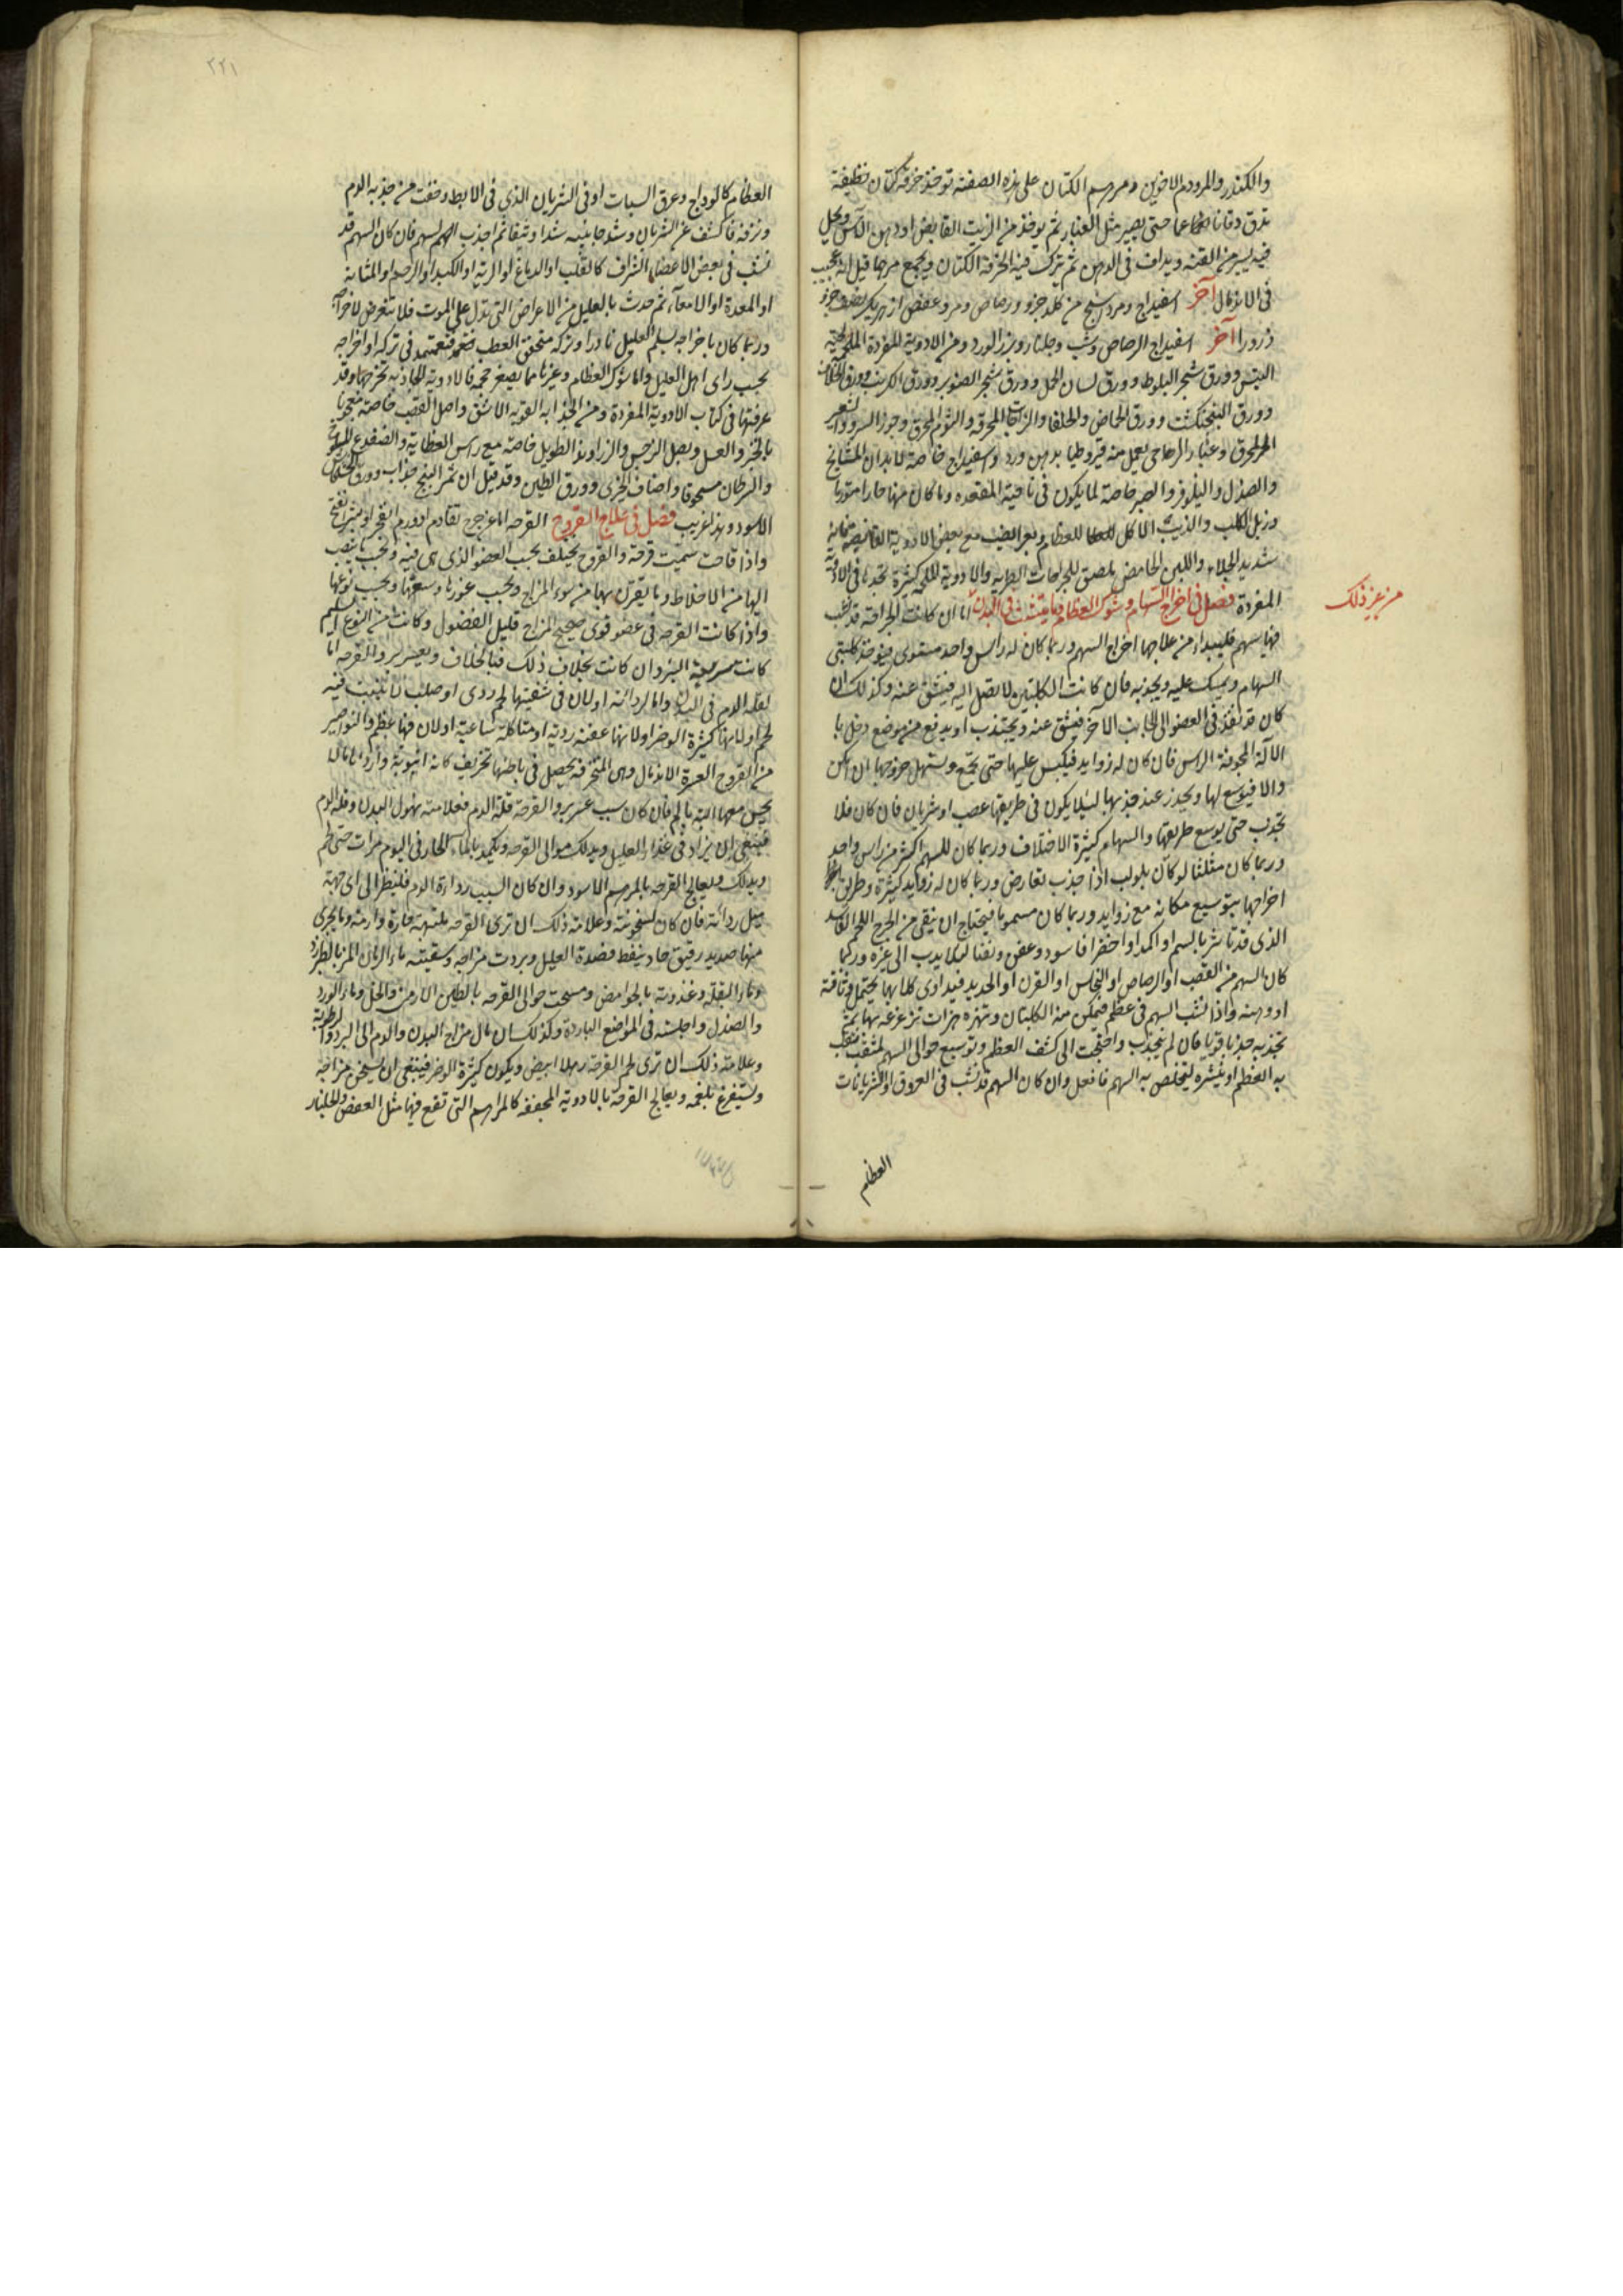 والكندر والمر ودم الاخوين ومرهم الكتان على هذه الصفة توخذ خرقة كتان نظيفة
تدق دقا ناعما حتى يصير مثل الغبار ثم يوخذ من الزيت القابض او دهن الآس ويحل
فيه يسير من القنه ويداف في الدهن ثم يترك فيه الخرقة الكتان ويجمع مرهما قيل انه عجيب
في الاندمال آخر اسفيداج ومرداسنج من كل جزو ورصاص ومر وعفص از هريك نصف جزو
ذرورا آخر اسفيداج الرصاص وشب وجلنار وبزر الورد ومن الادوية المفردة الملحمة
التبس وورق شجر البلوط وورق لسان الحمل وورق شجر الصنوبر وورق الكرنب وورق
وورق البنجنكشت وورق الحماض والحلفا والمحرقة والثوم المحرق وجوز السرو
المحرق وغبار الرحا يعمل منه قيروطيا بدهن ورد واسفيداج خاصة لابدان المشايخ
والصندل والنيلوفر والصبر خاصة لما يكون في ناحية المقعده وما كان منها حارا متورما
وزبل الكلب والذيب الاكل للعظام وبعر الضب مع بعض الادوية القابضة فانه
شديد الجلاء واللبن الحامض يلصق للجراحات الطريه والادوية الملحمة كثيرة تجدها في الادوية
المفردة فصل في اخراج السهام وشوك العظام وما ينشب في البدن اما ان كانت الجراحة قد نشب
من غير ذلك
فيها سهم فليبداء من علاجها اخراج السهم وربما كان له راس واحد مستوى فيوخذ كلبتى
السهام ويمسك عليه ويجذبه فان كانت الكلبتين لا تصل اليه فيشق عنه وكذلك ان
كان قد نفذ في العضو الى الجانب الآخر فيشق عنه ويجتذب او يدفع من موضع دخل با
الآلة المجوفة الراس فان كان له زوايد فيكبس عليها حتى تجمع ويسهل خروجها ان امكن
والا فيوسع لها ويحذر عند جذبها ليلا يكون في طريقها عصب او شريان فان كان فلا
تجذب حتى يوسع طريقها والسهام كثيرة الاختلاف وربما كان للسهم اكثر من راس واحد
وربما كان مثلثا لو كان بلولب اذا جذب تعارض وربما كان له زوايد كثيرة وطريق
اخراجها بتوسيع مكانه مع زوايد وربما كان مسموما فيحتاج ان ينقى من الجرح اللحم الفاسد
الذى قد تاثر بالسم او اكمد او اخضر او اسود وعفن ونقنا ليلا يدب الى غيره وربما
كان السهم من القصب او الرصاص او النحاس او القرن او الحديد فيداوى كلا بما يحتمل وثاقته
او وهنه واذا نشب السهم في عظم فيمكن منه الكلبتان وتهزه هزات تزعزعه بها ثم
تجذبه جذبا قويا فان لم ينجذب واحتجت الى كشف العظم وتوسيع حوالى السهم بمثقب
به العظم او ينشره ليتخلص به السهم فافعل وان كان السهم قد نشب في العروق او الشريانات
العظام
٢٢١
العظام كالوداج وعرق السبات او في الشريان الذي في الابط وخفت من جذبه الدم
ونزفه فاكشف عن الشريان وشد جانبيه شدا وثيقا ثم اجذب السهم فان كان السهم قد
نشب في بعض الاعضا الشراف كالقلب او الدماغ او الرية او الكبد او الرحم او المثانة
او المعدة او الامعآء ثم حدث بالعليل من الاعراض التى تدل على الموت فلا تتعرض لاخراجه
وربما كان باخراجه يسلم العليل نادرا وتركه متحقق العطب فتعتمد في تركه او اخراجه
بحسب راى اهل العليل واما شوك العظام وغيرها مما يصغر حجمه فالادوية الجاذبة تخرجها وقد
عرفتها في كتاب الادوية المفردة ومن الجذابه القوية الاشق واصل القصب خاصة معجونا
بالخبز والعسل وبصل النرجس والزراوند الطويل خاصة مع راس العظاية والضفدع
والسرطان مسحوقا واضاف الخزى وورق الطين وقد قيل ان ثمر البنج جذاب وورق الخشخاش
الاسود وهذا غريب فصل في علاج القروح القرحه اما عن جرح تقادم او ورم انفجر او بثر انفتح
واذا قاحت سميت قرحة والقروح يختلف بحسب العضو الذى هى فيه وبحسب ما ينصب
اليها من الاخلاط وما يقترن بها من سوء المزاج وبحسب غورها وسعتها وبحسب نوعها
واذا كانت القرحه في عضو قوى صحيح المزاج قليل الفضول وكانت من النوع السليم
كانت سريعة البرو ان كانت بخلاف ذلك فبالخلاف ويعسر برو القرحه اما
لقلة الدم في البدن واما لردائته اولان في شفتيها لحم ردى او صلب لا تنبت فيه
لحم اولانها كثيرة الوضر اولانها عفنة ردية او متاكلة ساعية اولان فيها عظم والنواصير
من القروح العسرة الاندمال وهى المنخرقه يحصل في باطنها تخريف كانه انبوبة وارداها ما لا
يحس معها البته بالم فان كان سبب عسر برو القرحة قلة الدم فعلامته نهول البدن وقلة الدم
فينبغى ان يزاد في غذاء العليل ويدلك حوالى القرحه وتكمد بالماء الحار في اليوم مرات حتى تحم
وبذلك ويعالج القرحه بالمرهم الاسود وان كان السبب رداءة الدم فلينظر الى اى جهة
ميل ردائته فان كان لسخونته وعلامة ذلك ان ترى القرحه ملتهبه حارة وارمة وما يجرى
منها صديد رقيق حاد ينفط فصدة العليل وبردت مزاجه وسقيته ماء الرمان المز بالطبرزد
وماء البقلة وغذوته بالحوامض ومسحت حوالى القرحه بالطين الارمنى والخل وماء الورد
والصندل واجلسته في المواضع الباردة وكذلك ان مال مزاج البدن والدم الى البرد والرطوبة
وعلامة ذلك ان ترى لحم القرحه رهلا ابيض ويكون كثيرة الوضر فينبغى ان يسخن مزاجه
ويستفرغ بلغمه ويعالج القرحة بالادوية المجففه كالمراهم التى تقع فيها مثل العفص والجلنار